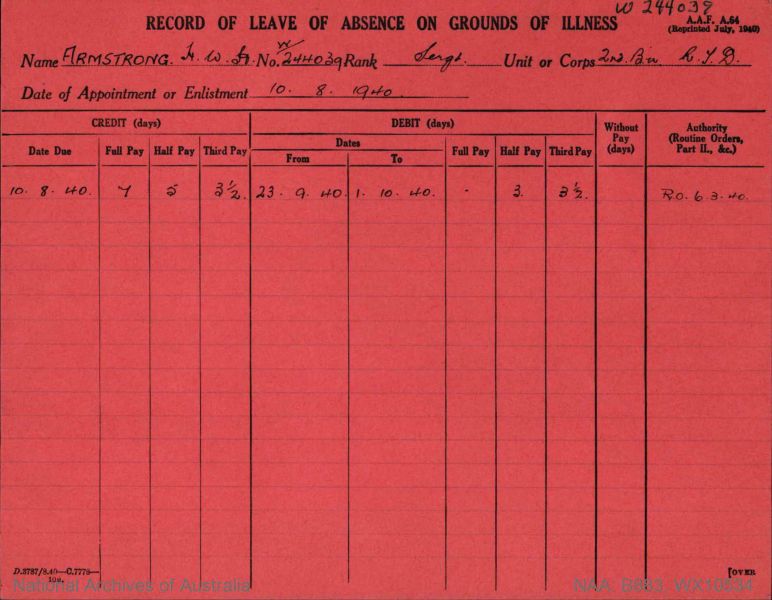 W 244039
RECORD OF LEAVE OF ABSENCE ON GROUNDS OF ILLNESS
A.A.F. A.64
(Reprinted July, 1940)
Name ARMSTRONG. H. W. No. W/244039 Rank Sergt. Unit or Corps 2nd. Bn R.T.D.
Date of Appointment or Enlistment 10. 8. 1940.
CREDIT (days) DEBIT (days) Without Pay (days) Authority (Routine Orders, Part II., &c.)
Dates
Date Due Full Pay Half Pay Third Pay From To Full Pay Half Pay Third Pay
10. 8. 40. 7 5 3½. 23. 9. 40. 1. 10. 40. - 3. 3½. R.O. 6. 3. 40.
D.3787/8.40—C.7778—
10m.
[OVER
National Archives of Australia NAA: B883, WX10534